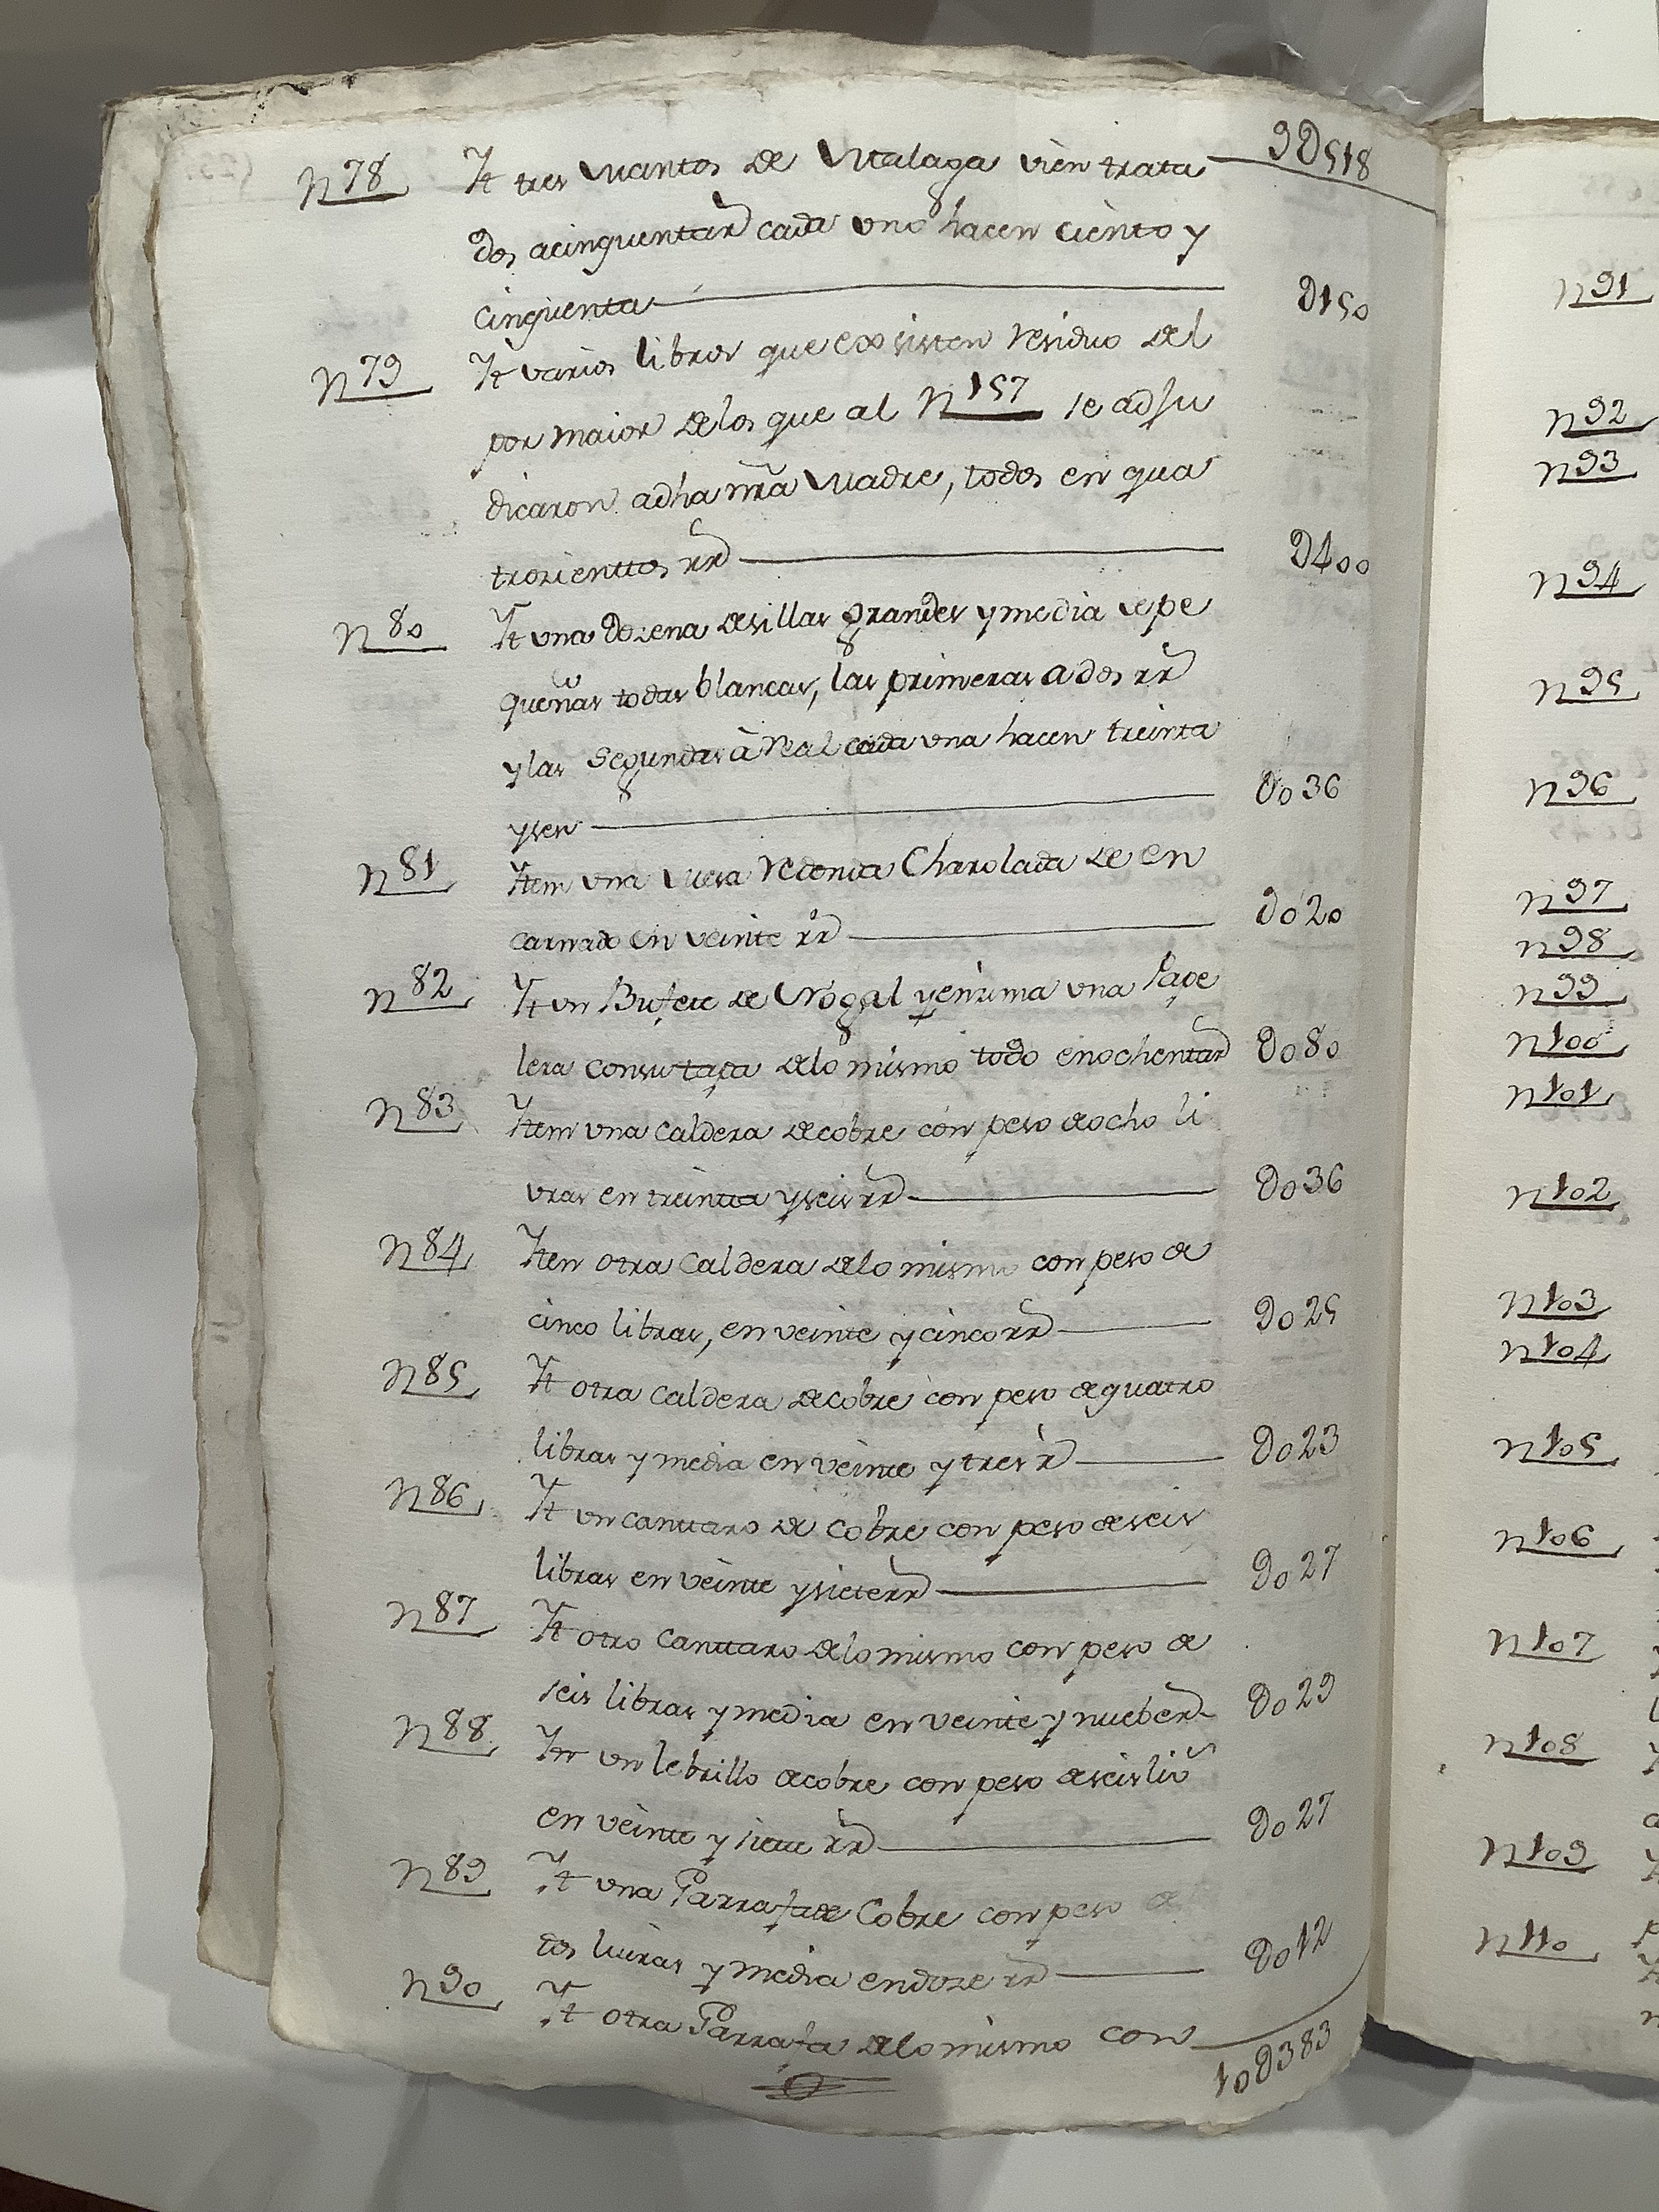 9D518
N78 Yt tres Mantos de Malaga vien trata
dos acinquentarr cada uno hacen ciento y
cinquenta D150
N79 Yt varios libros que exsisten residuo del
por maior delos que al N157 se adju
dicaron adha nra Madre, todos en qua
trozienttos rr D400
N80 Yt una dozena desillas grandes y media depe
queñas todas blancas, las primeras a dos rr
ylas segundas à real cada una hacen treinta
yseis D036
N81 Ytem una Mesa redonda Charolada de en
carnado en veinte rr D020
N82 Yt un Bufete de Nogal yenzima una Pape
lera consutapa delo mismo todo enochentarr D080
N83 Ytem una caldera decobre con peso deocho li
vras en treintta yseis rr D036
N84 Yten otra Caldera delo mismo con peso de
cinco libras, en veinte y cinco rr D025
N85 Yt otra caldera decobre con peso dequatro
libras y media en veinte y tres rr D023
N86 Yt un canttaro de cobre con peso deseis
libras en veinte ysieterr D027
N87 Yt otro canttaro delo mismo con peso de
seis libras y media en veinte y nueberr D029
N88 Yt un lebrillo decobre con peso deseis lis
en veinte y siete rr D027
N89 Yt una Garrafade Cobre con peso de
dos livras y media endoze rr D012
N90 Yt otra Garrafa delo mismo con
10D383
N91
N92
N93
N94
N95
N96
N97
N98
N99
N100
N101
N102
N103
N104
N105
N106
N107
N108
N109
N110